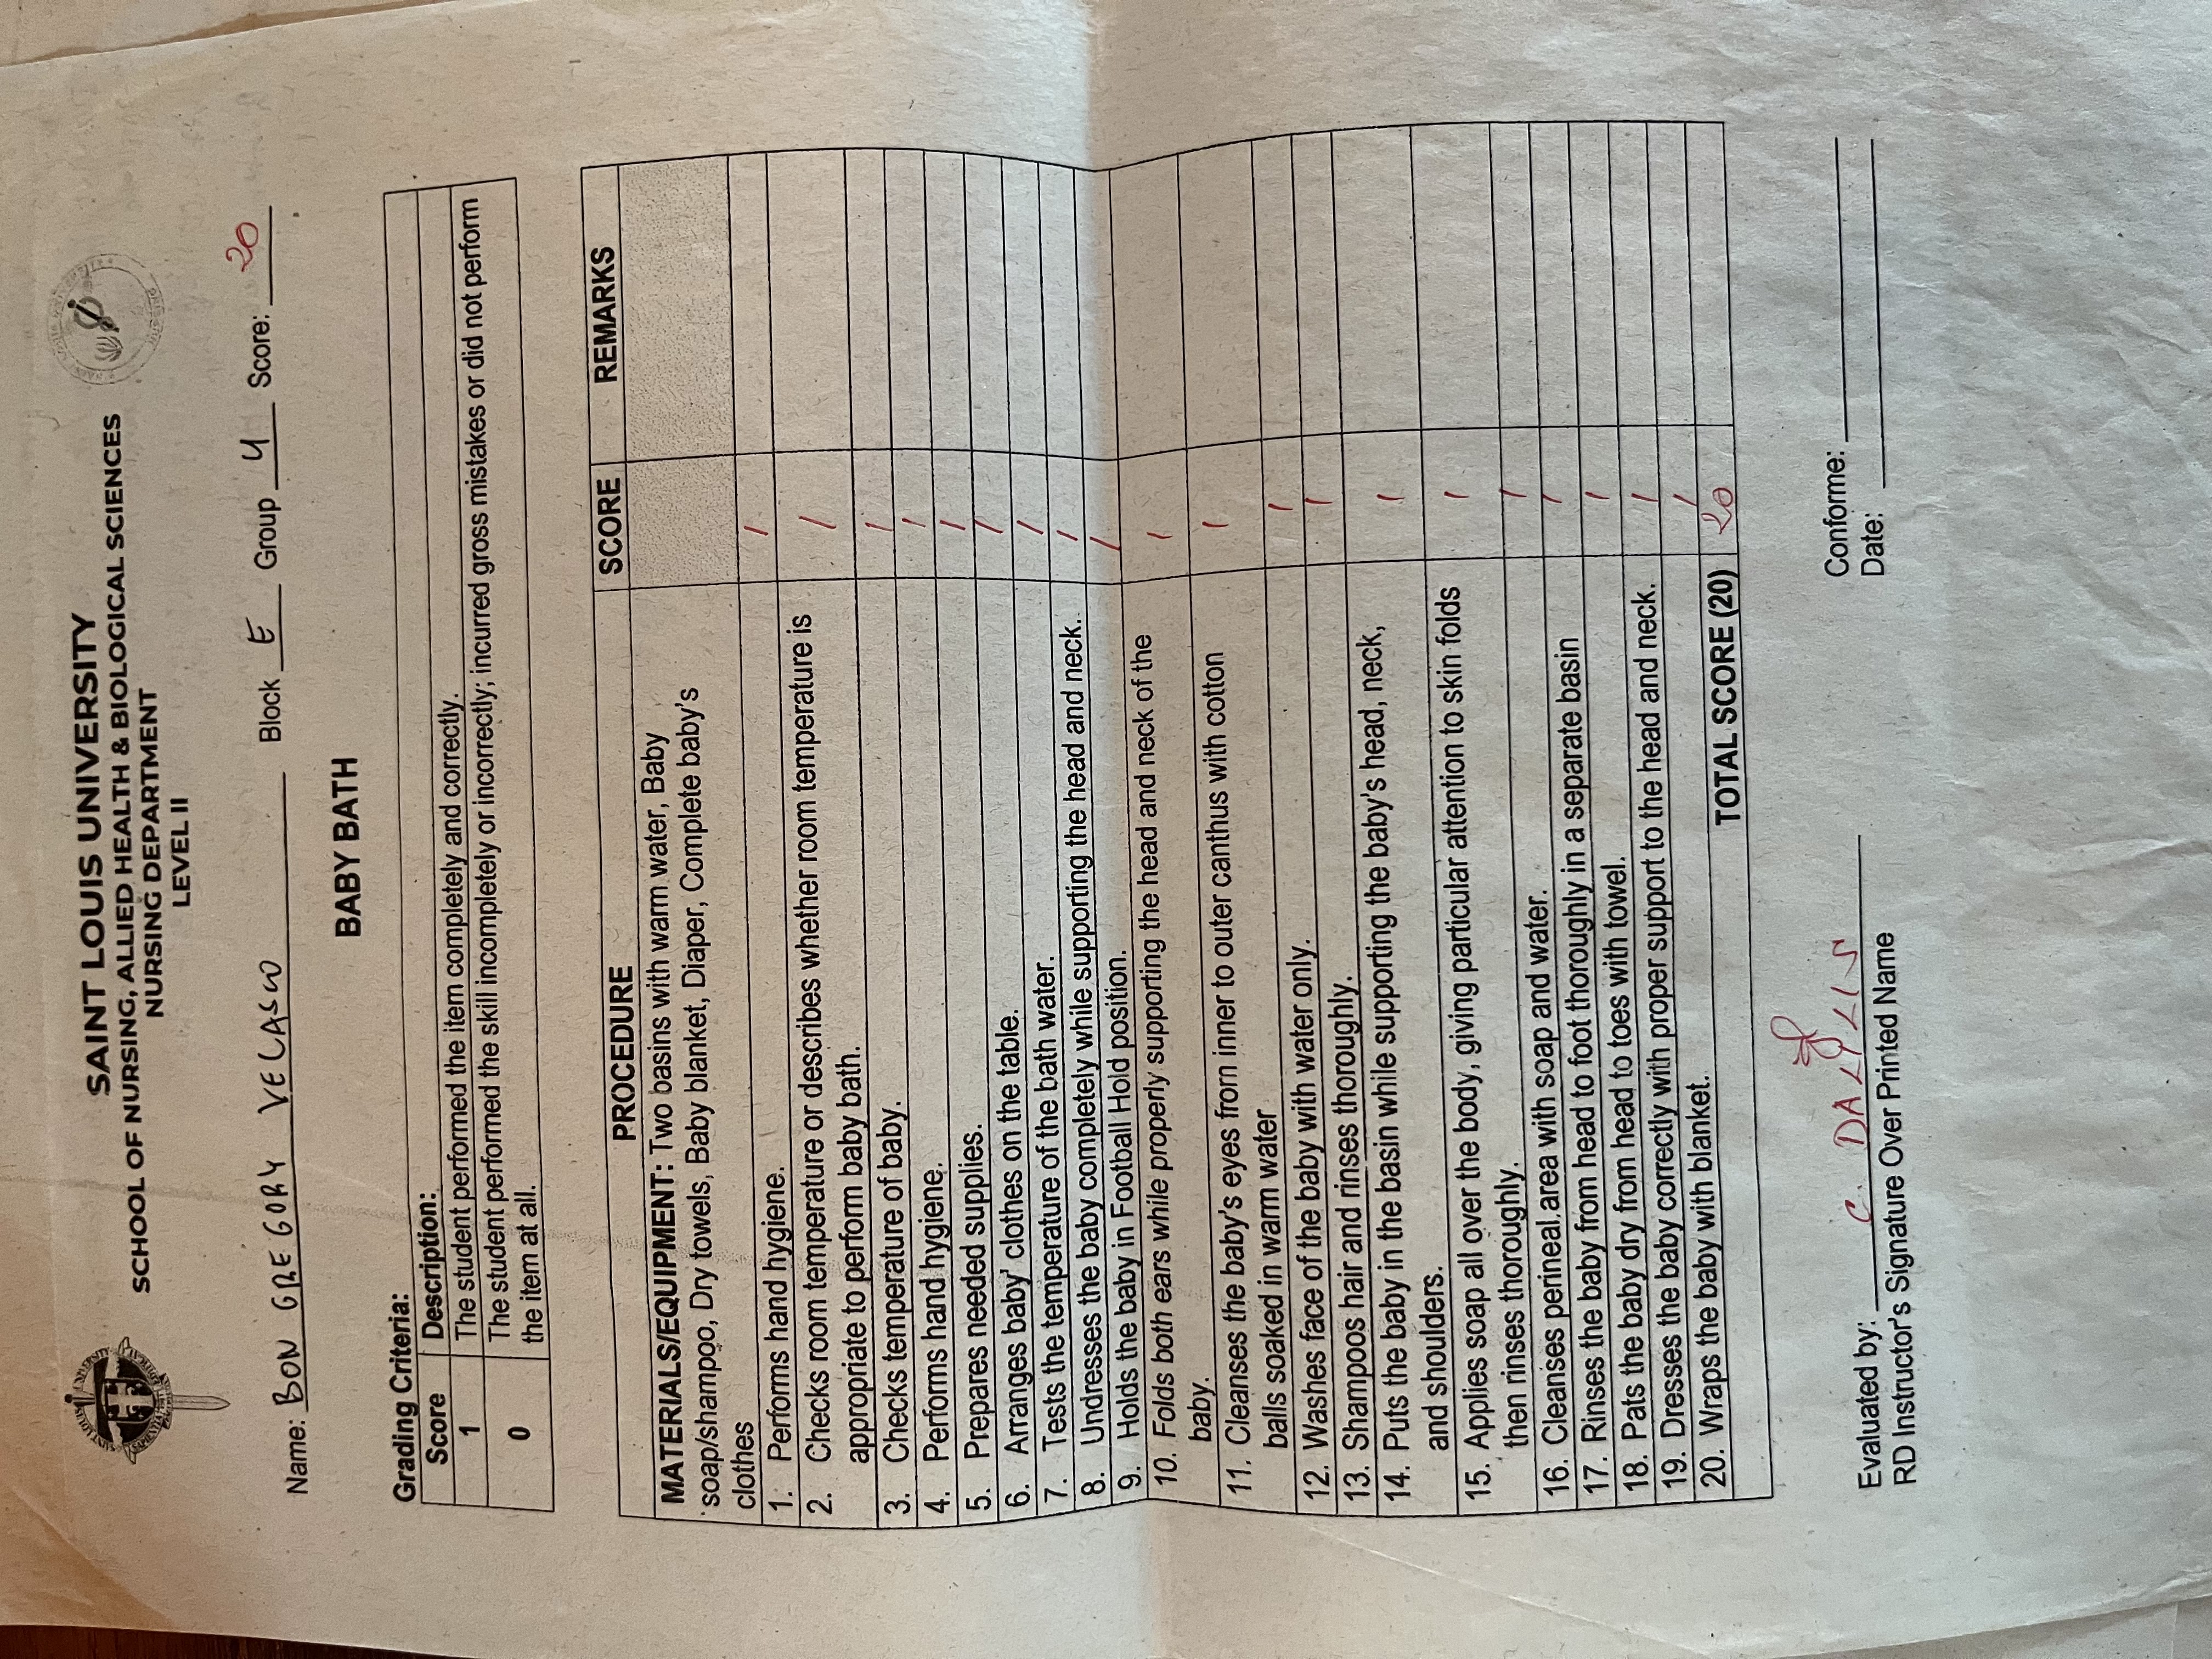 SAINT LOUIS UNIVERSITY
SCHOOL OF NURSING, ALLIED HEALTH & BIOLOGICAL SCIENCES
NURSING DEPARTMENT
LEVEL II
Name: BON GREGORY VELASCO Block E Group 4 Score: 20
BABY BATH
Grading Criteria:
Score Description:
1 The student performed the item completely and correctly.
0 The student performed the skill incompletely or incorrectly; incurred gross mistakes or did not perform
the item at all.
PROCEDURE SCORE REMARKS
MATERIALS/EQUIPMENT: Two basins with warm water, Baby
soap/shampoo, Dry towels, Baby blanket, Diaper, Complete baby's
clothes
1. Performs hand hygiene. 1
2. Checks room temperature or describes whether room temperature is
appropriate to perform baby bath. 1
3. Checks temperature of baby. 1
4. Performs hand hygiene. 1
5. Prepares needed supplies. 1
6. Arranges baby' clothes on the table. 1
7. Tests the temperature of the bath water. 1
8. Undresses the baby completely while supporting the head and neck. 1
9. Holds the baby in Football Hold position. 1
10. Folds both ears while properly supporting the head and neck of the
baby. 1
11. Cleanses the baby's eyes from inner to outer canthus with cotton
balls soaked in warm water 1
12. Washes face of the baby with water only. 1
13. Shampoos hair and rinses thoroughly. 1
14. Puts the baby in the basin while supporting the baby's head, neck,
and shoulders. 1
15. Applies soap all over the body, giving particular attention to skin folds
then rinses thoroughly. 1
16. Cleanses perineal area with soap and water. 1
17. Rinses the baby from head to foot thoroughly in a separate basin 1
18. Pats the baby dry from head to toes with towel. 1
19. Dresses the baby correctly with proper support to the head and neck. 1
20. Wraps the baby with blanket. 1
TOTAL SCORE (20) 20
Evaluated by: C. Conforme:
RD Instructor's Signature Over Printed Name Date: